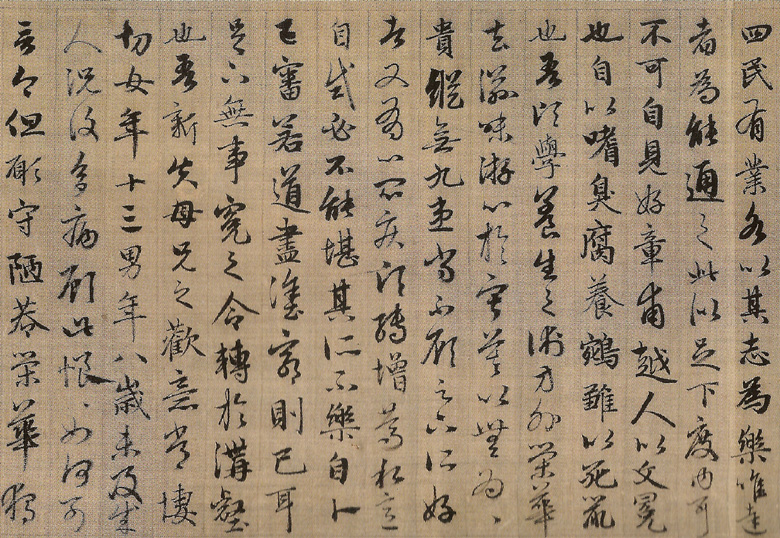 四民有業各以其志為樂唯達
者為能通之此似足下度內耳
不可自見好章甫越人以文冕
也自以嗜臭腐養鵷雛以死鼠
也吾頃學養生之術方外榮華
去滋味游心於寂莫以無為〻
貴縱無九患尚不顧足下所好
者又有心悶疾頃轉增篤私意
自試必不能堪其所不樂自卜
已審若道盡塗窮則已耳
足下無事冤之令轉於溝壑
也吾新失母兄之歡意常悽
切女年十三男年八歲未及成
人況復多病顧此恨〻如何可
言今但願守陋巷榮華獨